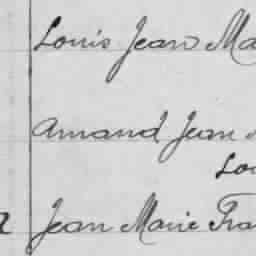 Louis Jean Ma
Amand Jean
Lou
Jean Marie Fra